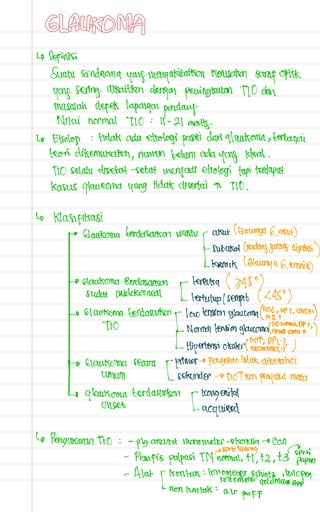 GLAUKOMA
↳ Definisi
Suatu sindroma yang mengakibatkan kerusakan saraf optik
yang sering dikaitkan dengan peningkatan TIO dan
masalah defek lapangan pandang
Nilai normal TIO : 11-21 mmHg
↳ Etiologi : tidak ada etiologi pasti dari glaukoma, berbagai
teori dikemukakan, namun belum ada yang ideal.
TIO selalu disebut-sebut menjadi etiologi tapi terdapat
kasus glaukoma yang tidak disertai ↑ TIO.
↳ Klasifikasi
→ Glaukoma berdasarkan waktu
akut (biasanya G. akut)
subakut
kronik (biasanya G. kronik)
→ Glaukoma Berdasarkan
sudut
terbuka (≥45°)
tertutup/sempit (<45°)
→ Glaukoma berdasarkan
TIO
low tension glaucoma
Normal tension glaucoma
Hipertensi okuler
→ Glaukoma secara
umum
primer → penyebab tidak diketahui
sekunder → TIO↑ krn penyakit mata
→ glaukoma berdasarkan
onset
kongenital
acquired
↳ Pengukuran TIO :
- Pemfis palpasi TN normal, t1, t2, t3
- Alat
kontak : tonometer schiotz, tonopen
tonometer goldmann APP
non kontak : air puff